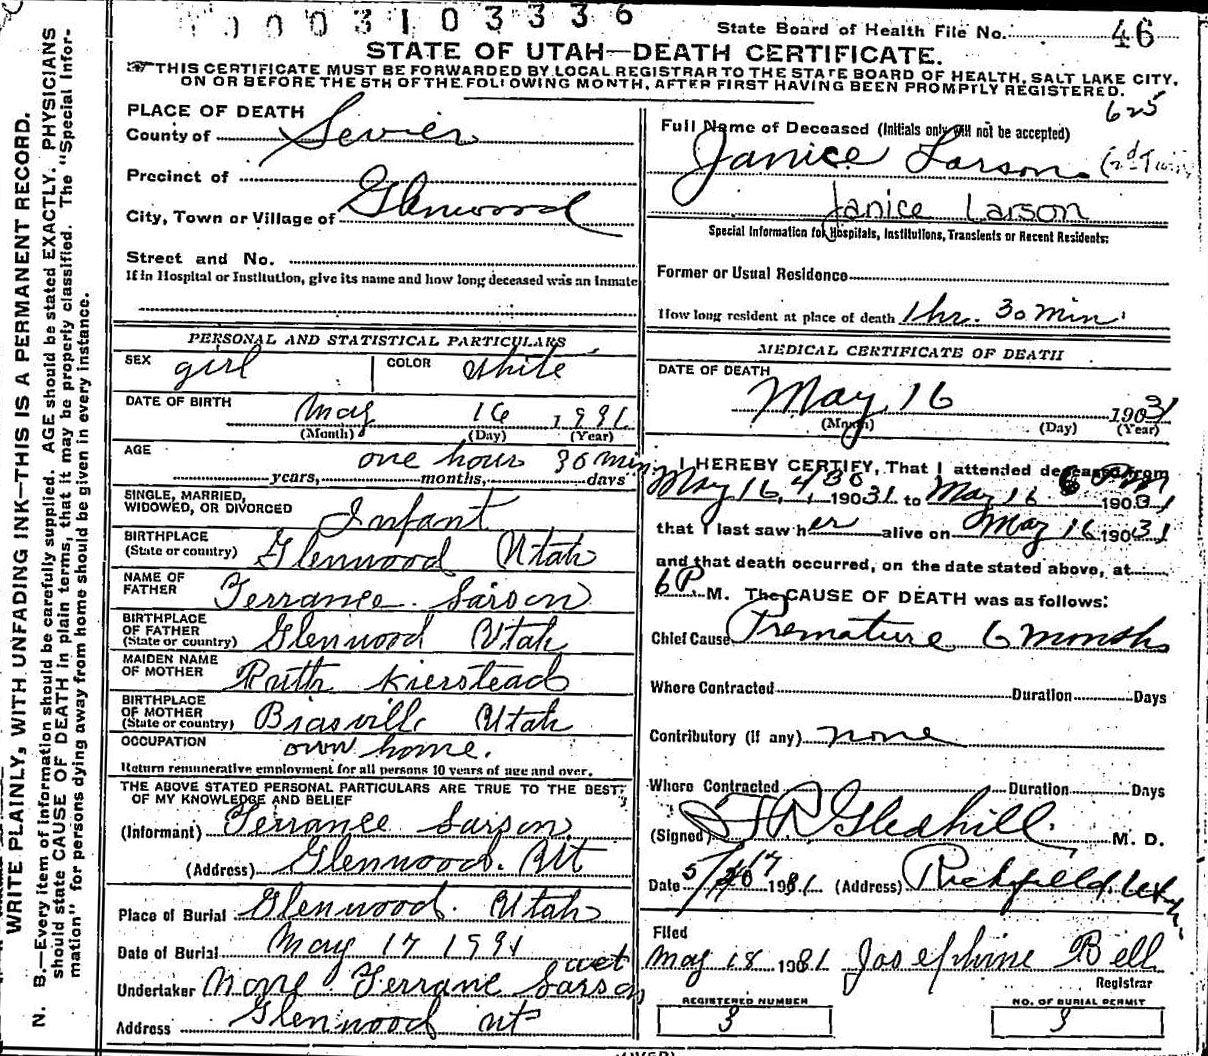 0003103336
State Board of Health File No. 46
STATE OF UTAH—DEATH CERTIFICATE.
THIS CERTIFICATE MUST BE FORWARDED BY LOCAL REGISTRAR TO THE STATE BOARD OF HEALTH, SALT LAKE CITY,
ON OR BEFORE THE 5TH OF THE FOLLOWING MONTH, AFTER FIRST HAVING BEEN PROMPTLY REGISTERED.
WRITE PLAINLY, WITH UNFADING INK—THIS IS A PERMANENT RECORD.
N. B.—Every item of information should be carefully supplied. AGE should be stated EXACTLY. PHYSICIANS
should state CAUSE OF DEATH in plain terms, that it may be properly classified. The "Special Infor-
mation" for persons dying away from home should be given in every instance.
PLACE OF DEATH
County of Sevier
Precinct of
City, Town or Village of Glenwood
Street and No.
If in Hospital or Institution, give its name and how long deceased was an Inmate
PERSONAL AND STATISTICAL PARTICULARS
SEX girl COLOR White
DATE OF BIRTH May 16 1931
(Month) (Day) (Year)
AGE one hour 30 min
years, months, days
SINGLE, MARRIED,
WIDOWED, OR DIVORCED Infant
BIRTHPLACE
(State or country) Glenwood Utah
NAME OF
FATHER Terrance Larson
BIRTHPLACE
OF FATHER
(State or country) Glenwood Utah
MAIDEN NAME
OF MOTHER Ruth Kierstead
BIRTHPLACE
OF MOTHER
(State or country) Utah
OCCUPATION own home.
Return remunerative employment for all persons 10 years of age and over.
THE ABOVE STATED PERSONAL PARTICULARS ARE TRUE TO THE BEST
OF MY KNOWLEDGE AND BELIEF
(Informant) Terrance Larson
(Address) Glenwood. Ut
Place of Burial Glenwood. Utah
Date of Burial May 17 1931
Undertaker None Terrane Larson act
Address Glenwood Ut
625
Full Name of Deceased (Initials only will not be accepted)
Janice Larson. (2d Twin)
Janice Larson
Special Information for Hospitals, Institutions, Transients or Recent Residents:
Former or Usual Residence
How long resident at place of death 1 hr. 30 min.
MEDICAL CERTIFICATE OF DEATH
DATE OF DEATH
May 16 1931
(Month) (Day) (Year)
I HEREBY CERTIFY, That I attended deceased from
May 16, 430 1931 to May 16 1931
that I last saw her alive on May 16 1931
and that death occurred, on the date stated above, at
6 P. M. The CAUSE OF DEATH was as follows:
Chief Cause Premature 6 months
Where Contracted Duration Days
Contributory (if any) none
Where Contracted Duration Days
(Signed) Gledhill M. D.
Date 5/17 1931 (Address) Richfield, Utah
Filed
May 18 1931 Josephine Bell
Registrar
REGISTERED NUMBER
3
NO. OF BURIAL PERMIT
3
(OVER)